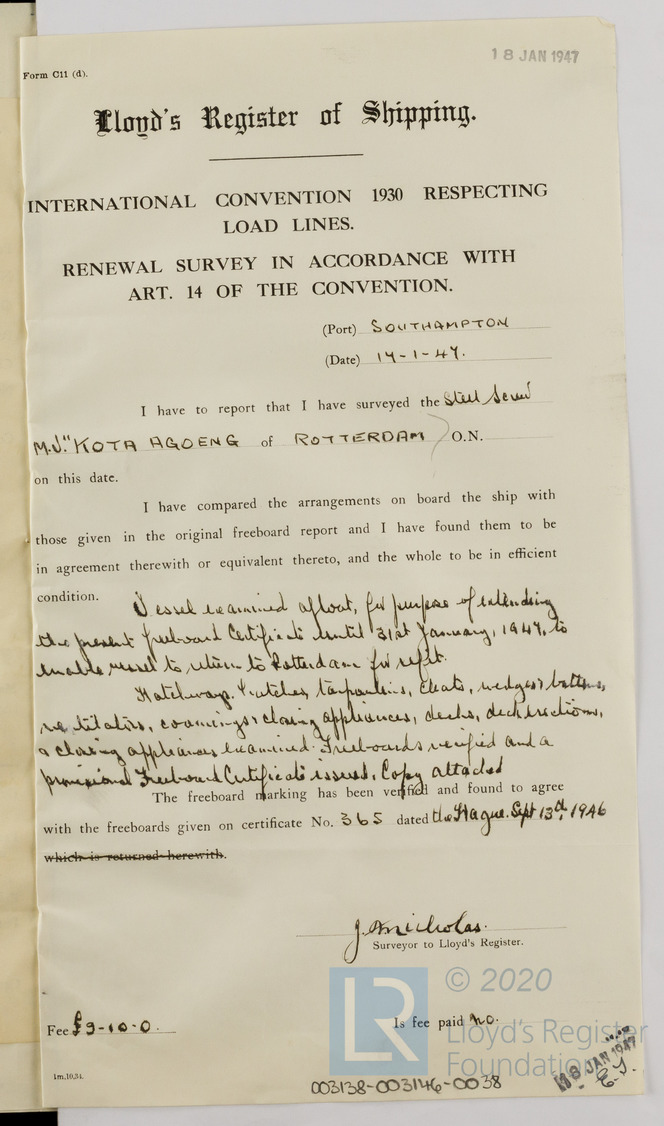 18 JAN 1947
Form C11 (d).
Lloyd's Register of Shipping.
INTERNATIONAL CONVENTION 1930 RESPECTING
LOAD LINES.
RENEWAL SURVEY IN ACCORDANCE WITH
ART. 14 OF THE CONVENTION.
(Port) SOUTHAMPTON
(Date) 17-1-47.
I have to report that I have surveyed the Steel Screw
M.V. "KOTA AGOENG of ROTTERDAM O.N.
on this date.
I have compared the arrangements on board the ship with
those given in the original freeboard report and I have found them to be
in agreement therewith or equivalent thereto, and the whole to be in efficient
condition. Vessel examined afloat, for purpose of extending
the present freeboard Certificate until 31st January, 1947, to
enable vessel to return to Rotterdam for refit.
Hatchways. Hatches, tarpaulins, cleats, wedges & battens,
ventilators, coamings & closing appliances, decks, deck erections,
& closing appliances examined. Freeboards verified and a
provisional Freeboard Certificate issued, Copy attached
The freeboard marking has been verified and found to agree
with the freeboards given on certificate No. 365 dated the Hague. Sept 13th, 1946
which is returned herewith.
J. Nicholas.
Surveyor to Lloyd's Register.
© 2020
Fee £3-10-0.
Is fee paid no.
Lloyd's Register
Foundation
18 JAN 1947
1m,10,34.
003138-003146-0038